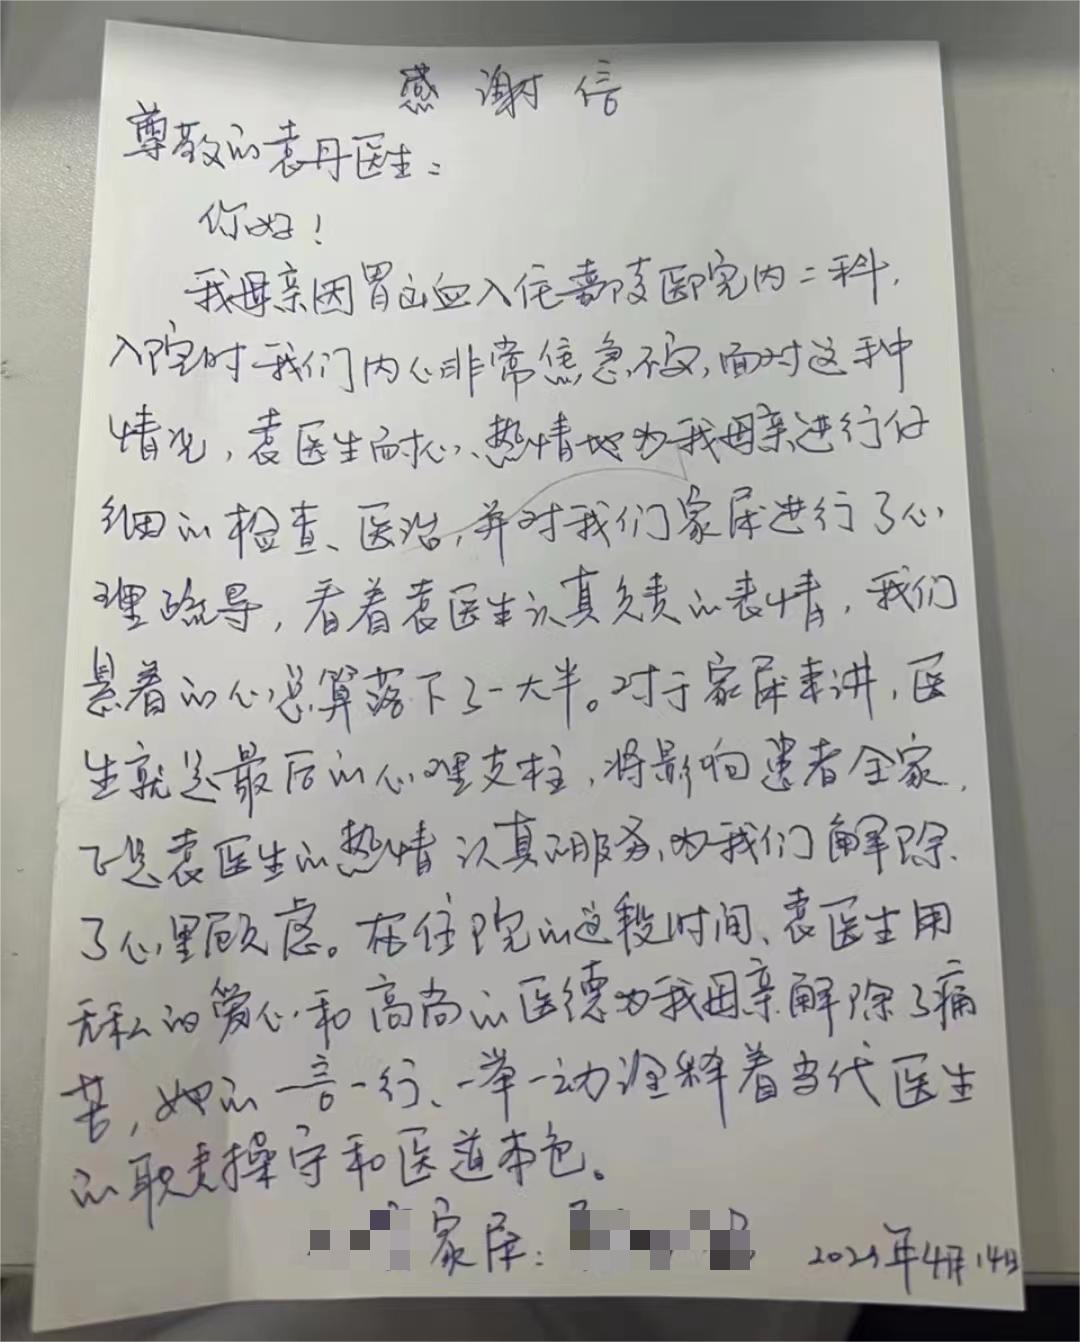 感谢信
尊敬的袁丹医生:
你好!
我母亲因胃出血入住嘉陵医院内二科,
入院时我们内心非常焦急不安,面对这种
情况,袁医生耐心、热情地为我母亲进行仔
细的检查、医治,并对我们家属进行了心
理疏导,看着袁医生认真负责的表情,我们
悬着的心总算落下了一大半。对于家属来讲,医
生就是最后的心理支柱,将影响患者全家,
正是袁医生的热情认真的服务,为我们解除
了心里顾虑。在住院的这段时间、袁医生用
无私的爱心和高尚的医德为我母亲解除了痛
苦,她的一言一行、一举一动诠释着当代医生
的职责操守和医道本色。
家属:
年4月14日